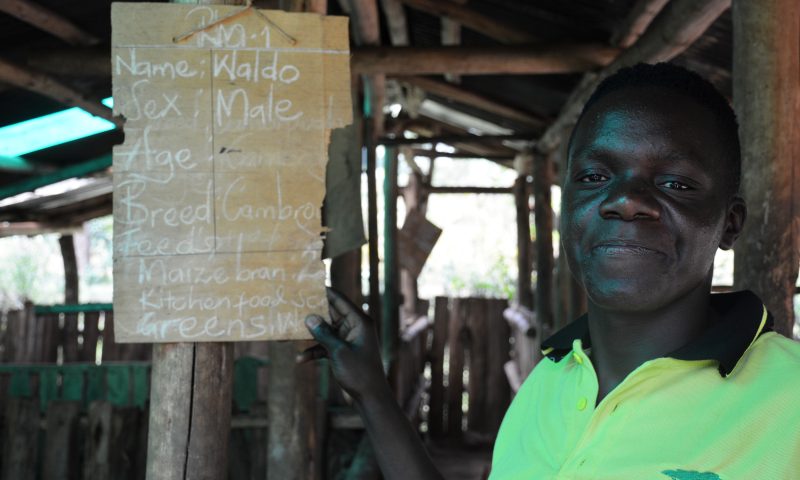 RM:1
Name; Waldo
Sex; Male
Age:
Breed: Cambrou
Feeds:
Maize bran.
Kitchen food
Greens.